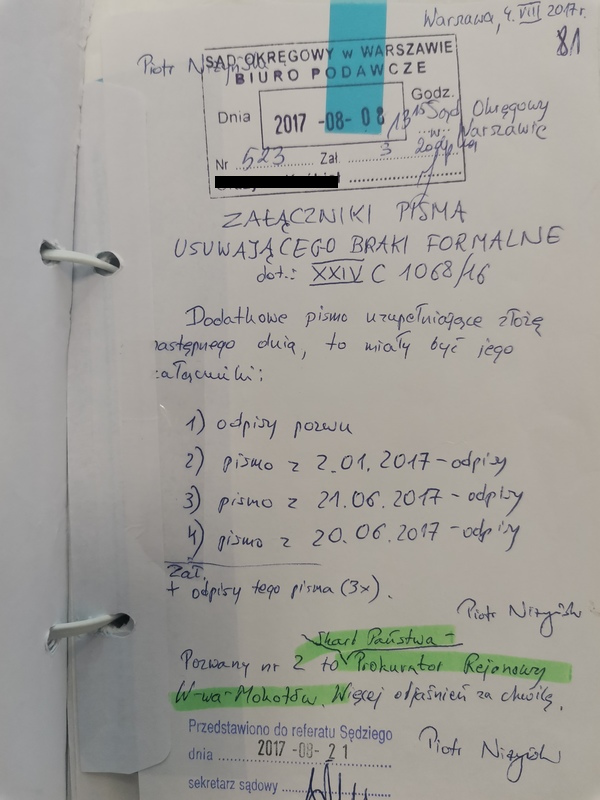 Warszawa, 4. VIII 2017r.
81
Piotr Niżyński
SĄD OKRĘGOWY w WARSZAWIE
BIURO PODAWCZE
Dnia 2017 -08- 08 Godz. 13 15
Nr 523 Zał. 3
Sąd Okręgowy
w Warszawie
ZAŁĄCZNIKI PISMA
USUWAJĄCEGO BRAKI FORMALNE
dot.: XXIV C 1068/16
Dodatkowe pismo uzupełniające złożę
następnego dnia, to miały być jego
załączniki:
1) odpisy pozwu
2) pismo z 2.01.2017 - odpisy
3) pismo z 21.06.2017 - odpisy
4) pismo z 20.06.2017 - odpisy
Zał.
+ odpisy tego pisma (3x).
Piotr Niżyński
Skarb Państwa -
Pozwany nr 2 to Prokurator Rejonowy
W-wa-Mokotów. Więcej objaśnień za chwilę.
Piotr Niżyński
Przedstawiono do referatu Sędziego
dnia 2017 -08- 21
sekretarz sądowy